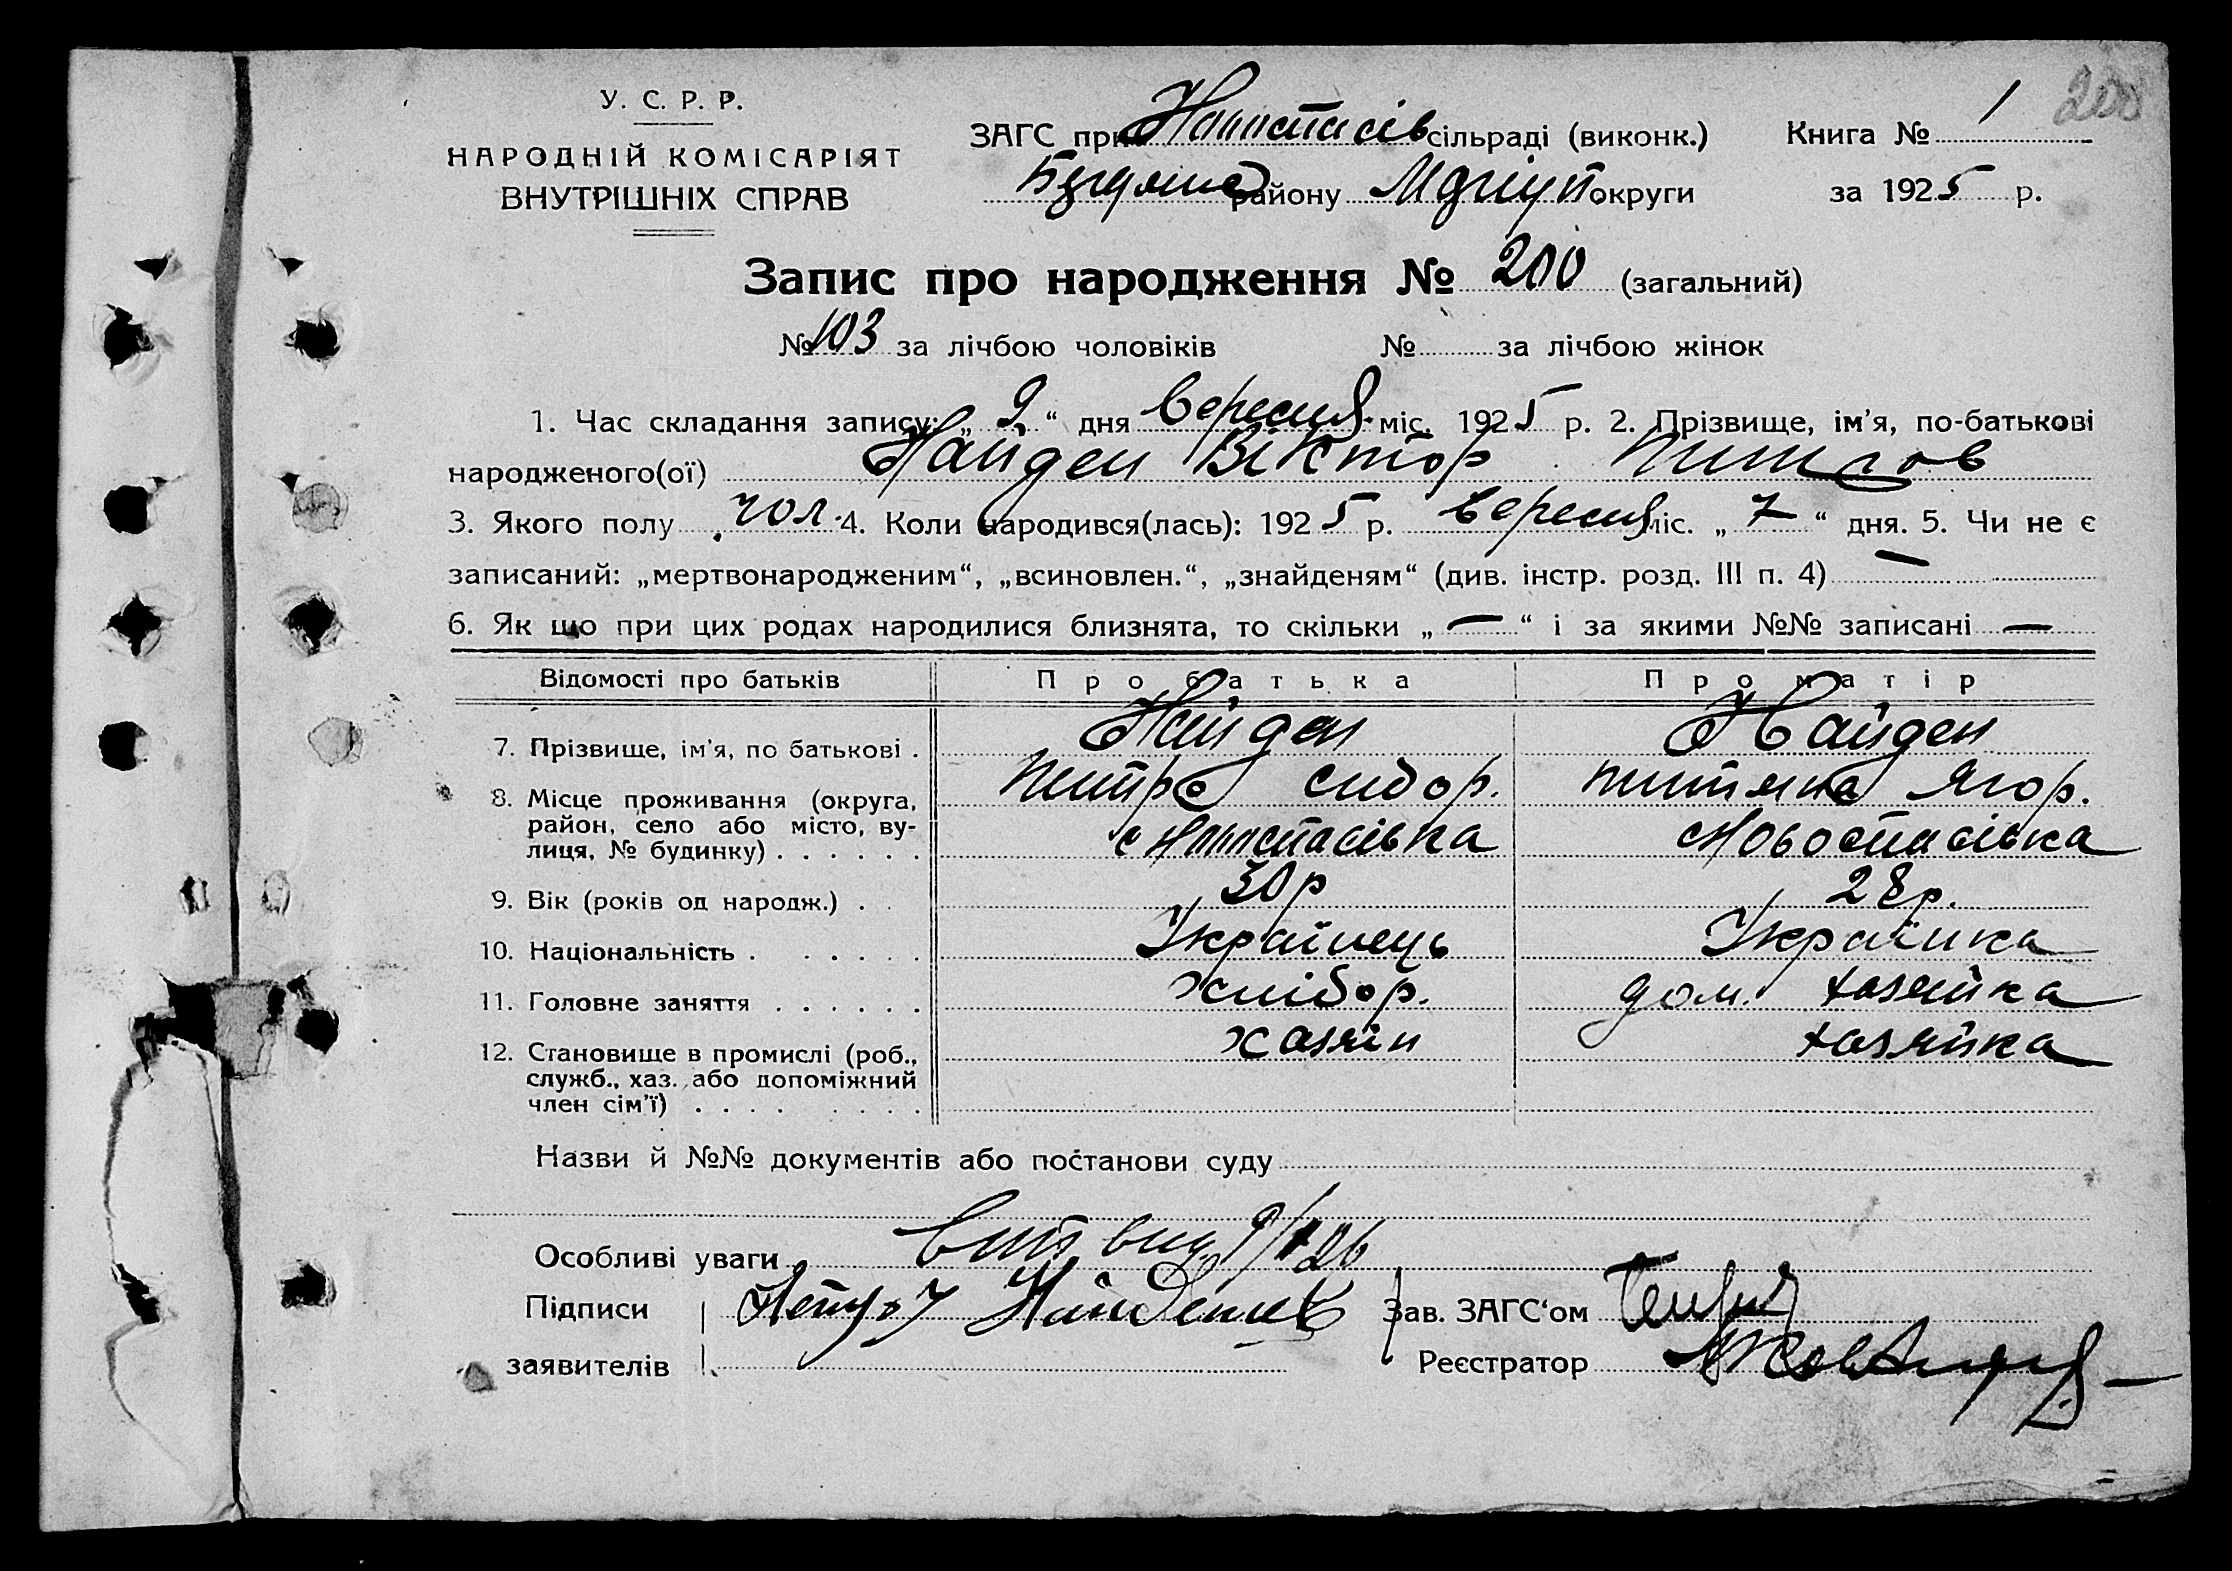 200
У. С. Р. Р.
НАРОДНІЙ КОМІСАРІЯТ
ВНУТРІШНІХ СПРАВ
ЗАГС при сільраді (виконк.) Книга № 1
району округи за 1925 р.
Запис про народження № 200 (загальний)
№ 103 за лічбою чоловіків № за лічбою жінок
1. Час складання запису: „ 9 “ дня вересня міс. 1925 р. 2. Прізвище, ім'я, по-батькові
народженого(ої) Найден Віктор
3. Якого полу чол. 4. Коли народився(лась): 1925 р. вересня міс. „ 7 “ дня. 5. Чи не є
записаний: „мертвонародженим“, „всиновлен.“, „знайденям“ (див. інстр. розд. III п. 4) —
6. Як що при цих родах народилися близнята, то скільки „ — “ і за якими №№ записані —
Відомості про батьків Про батька Про матір
7. Прізвище, ім'я, по батькові . Найден Найден
сидор. Ягор.
8. Місце проживання (округа,
район, село або місто, ву-
лиця, № будинку) . . . . . . с Новоспасівка
9. Вік (років од народж.) . . 30 р 28 р.
10. Національність . . . . . . Українець Українка
11. Головне заняття . . . . . . хлібор. дом. хазяйка
12. Становище в промислі (роб., хазяїн хазяйка
служб., хаз. або допоміжний
член сім'ї) . . . . . . . .
Назви й №№ документів або постанови суду
Особливі уваги
Підписи Зав. ЗАГС'ом
заявителів Реєстратор